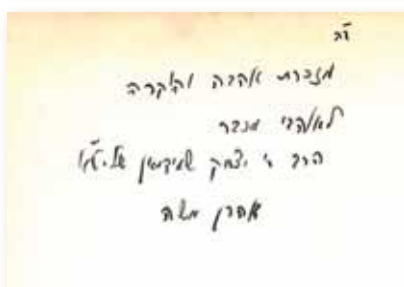 ב"ה
מזכרת אהבה והוקרה
לאהובי מכבר
הרב ר' יצחק שליט"א
אהרן משה